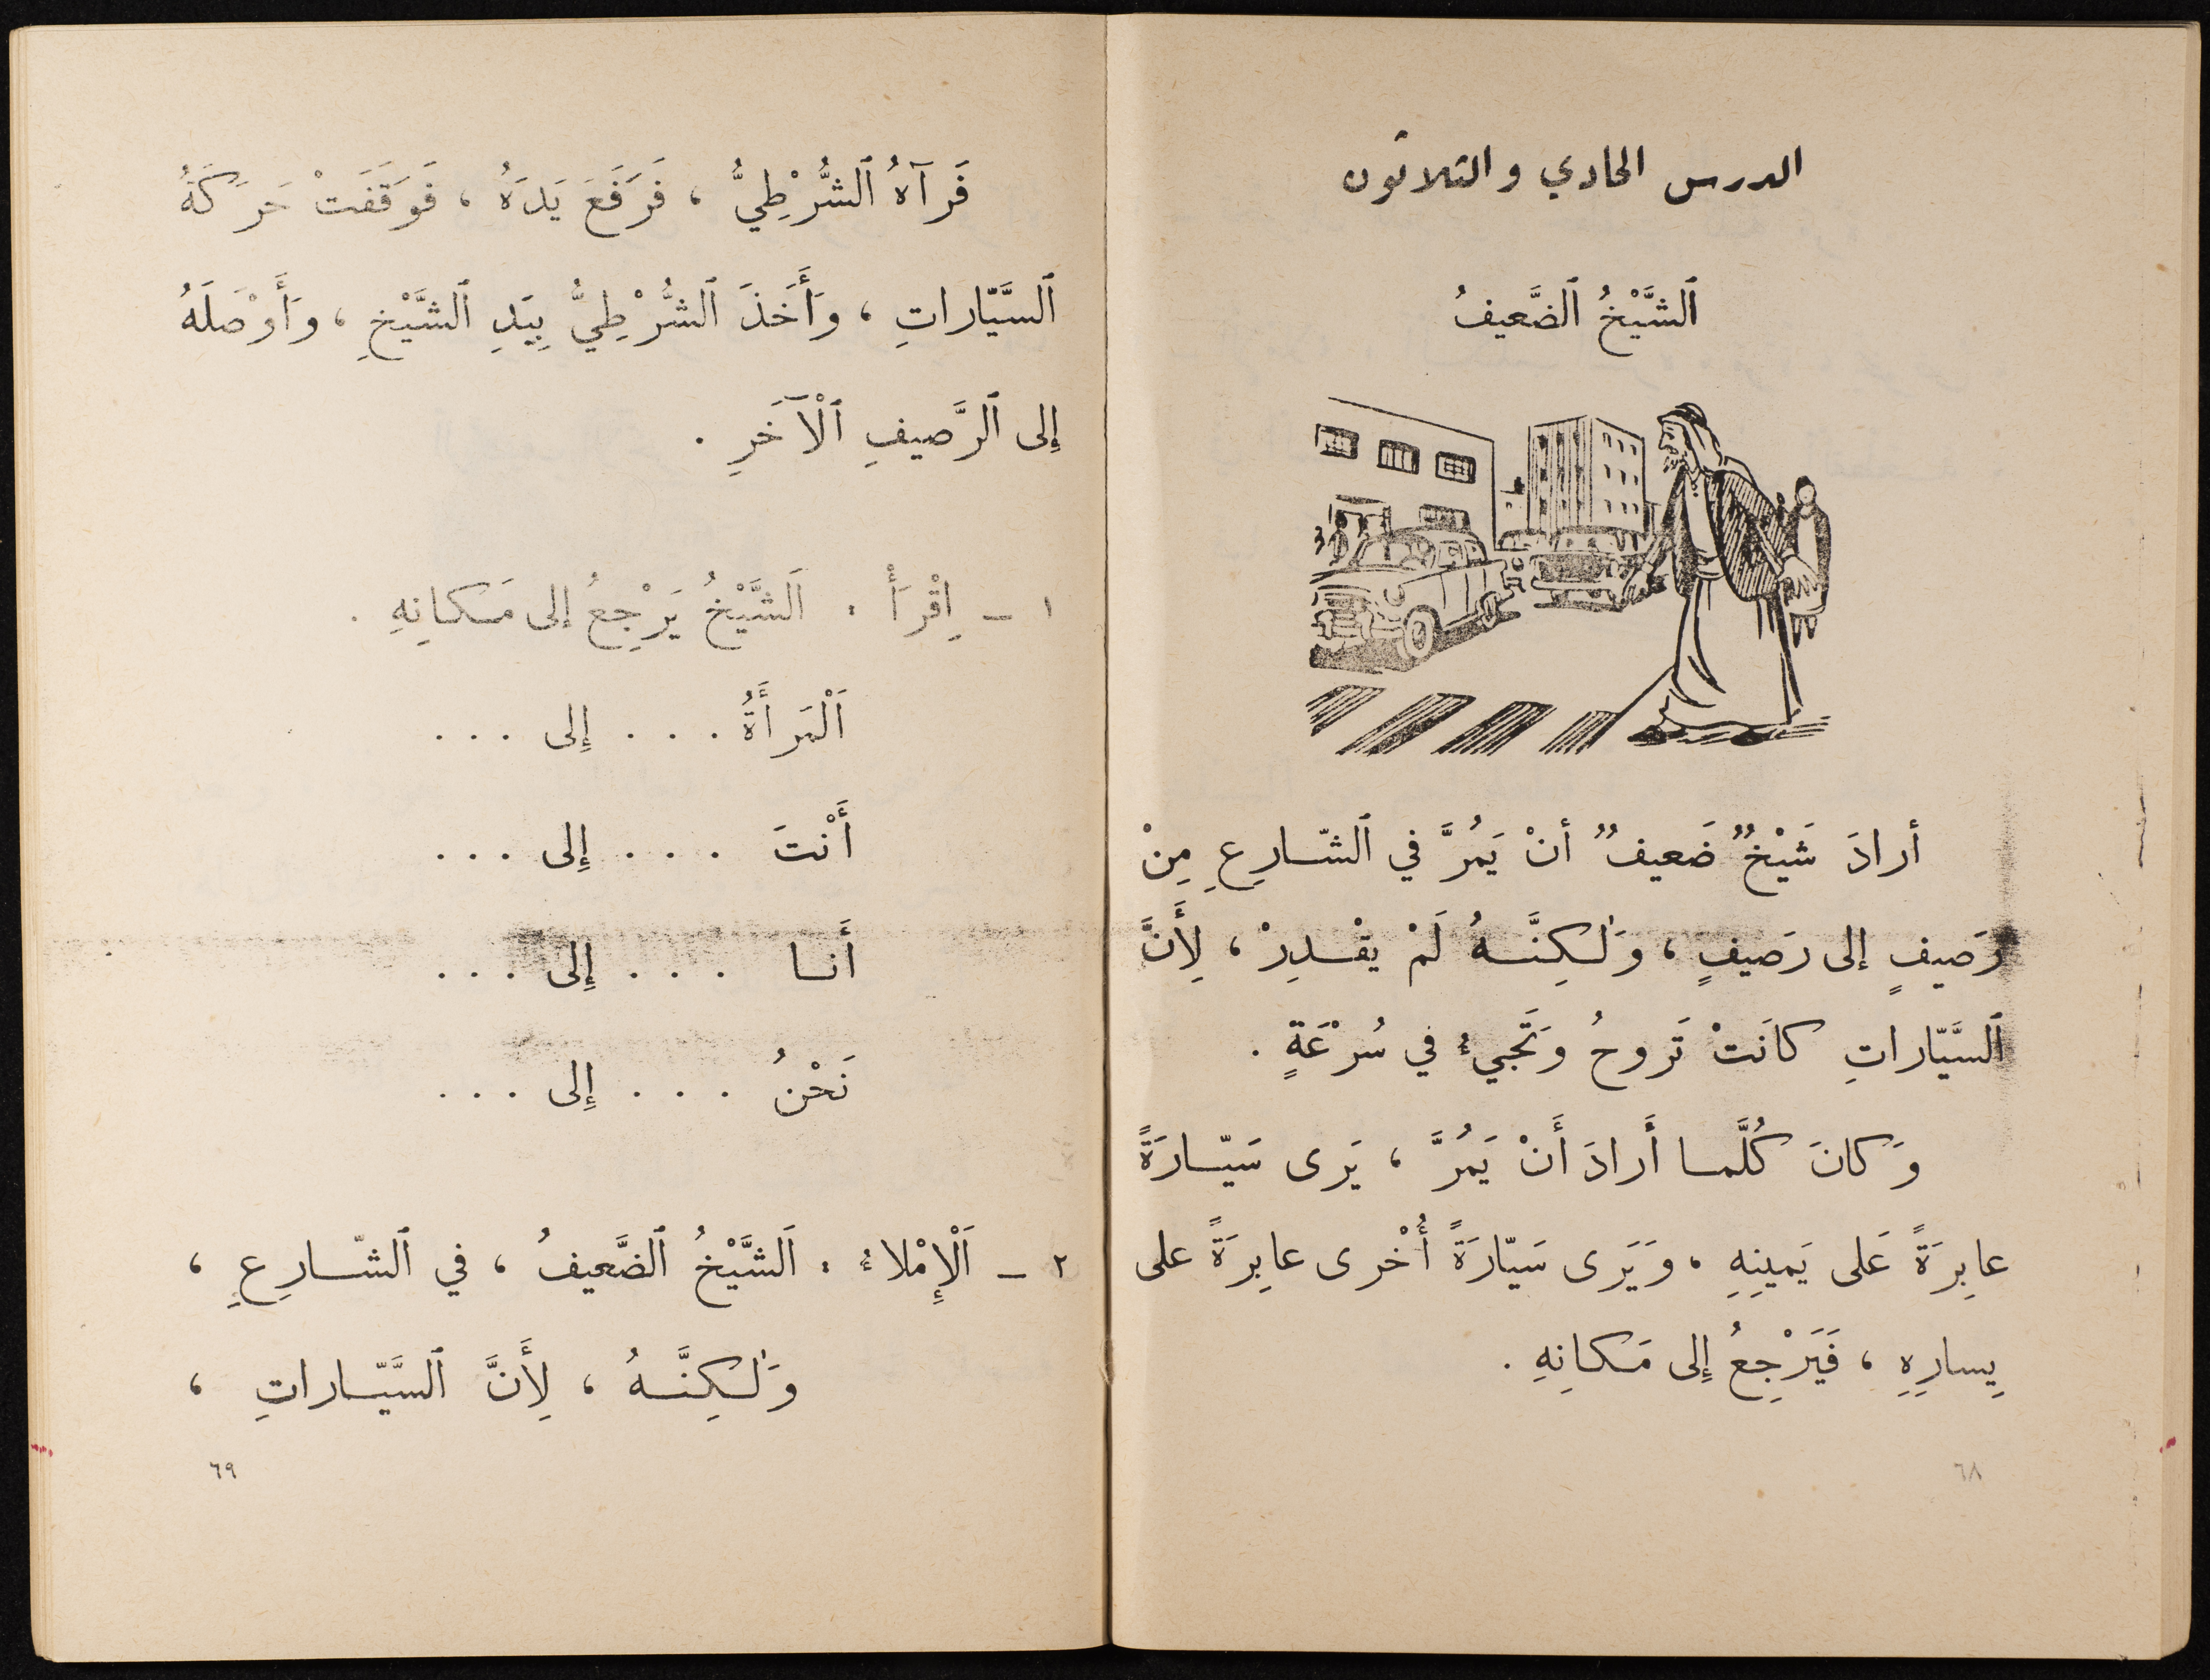 الدرس الحادي والثلاثون
اَلشَّيْخُ اَلضَّعيفُ
أرادَ شَيْخٌ ضَعيفٌ أنْ يَمُرَّ في اَلشّارِعِ مِنْ
رَصيفٍ إلى رَصيفٍ ، وَلٰكِنَّهُ لَمْ يقْدِرْ ، لِأَنَّ
اَلسَّيّاراتِ كانَتْ تَروحُ وَتَجيءُ في سُرْعَةٍ .
وَكانَ كُلَّما أَرادَ أَنْ يَمُرَّ ، يَرى سَيّارَةً
عابِرَةً عَلى يَمينِهِ ، وَيَرَى سَيّارَةً أُخْرى عابِرَةً على
يِسارِهِ ، فَيَرْجِعُ إِلى مَكانِهِ .
٦٨
فَرَآهُ اَلشُّرْطِيُّ ، فَرَفَعَ يَدَهُ ، فَوَقَفَتْ حَرَكَةُ
اَلسَّيّاراتِ ، وَأَخَذَ اَلشُّرْطِيُّ بِيَدِ اَلشَّيْخِ ، وَأَوْصَلَهُ
إِلى اَلرَّصيفِ اَلْآخَرِ .
١ – اِقْرَأْ : اَلشَّيْخُ يَرْجِعُ إلى مَكانِهِ .
اَلْمَرأَةُ . . . إِلى . . .
أَنْتَ . . . إِلى . . .
أَنا . . . إِلى . . .
نَحْنُ . . . إِلى . . .
٢ – اَلْإِمْلاءُ : اَلشَّيْخُ اَلضَّعيفُ ، في اَلشّارِعِ ،
وَلٰكِنَّهُ ، لِأَنَّ اَلسَّيّاراتِ ،
٦٩